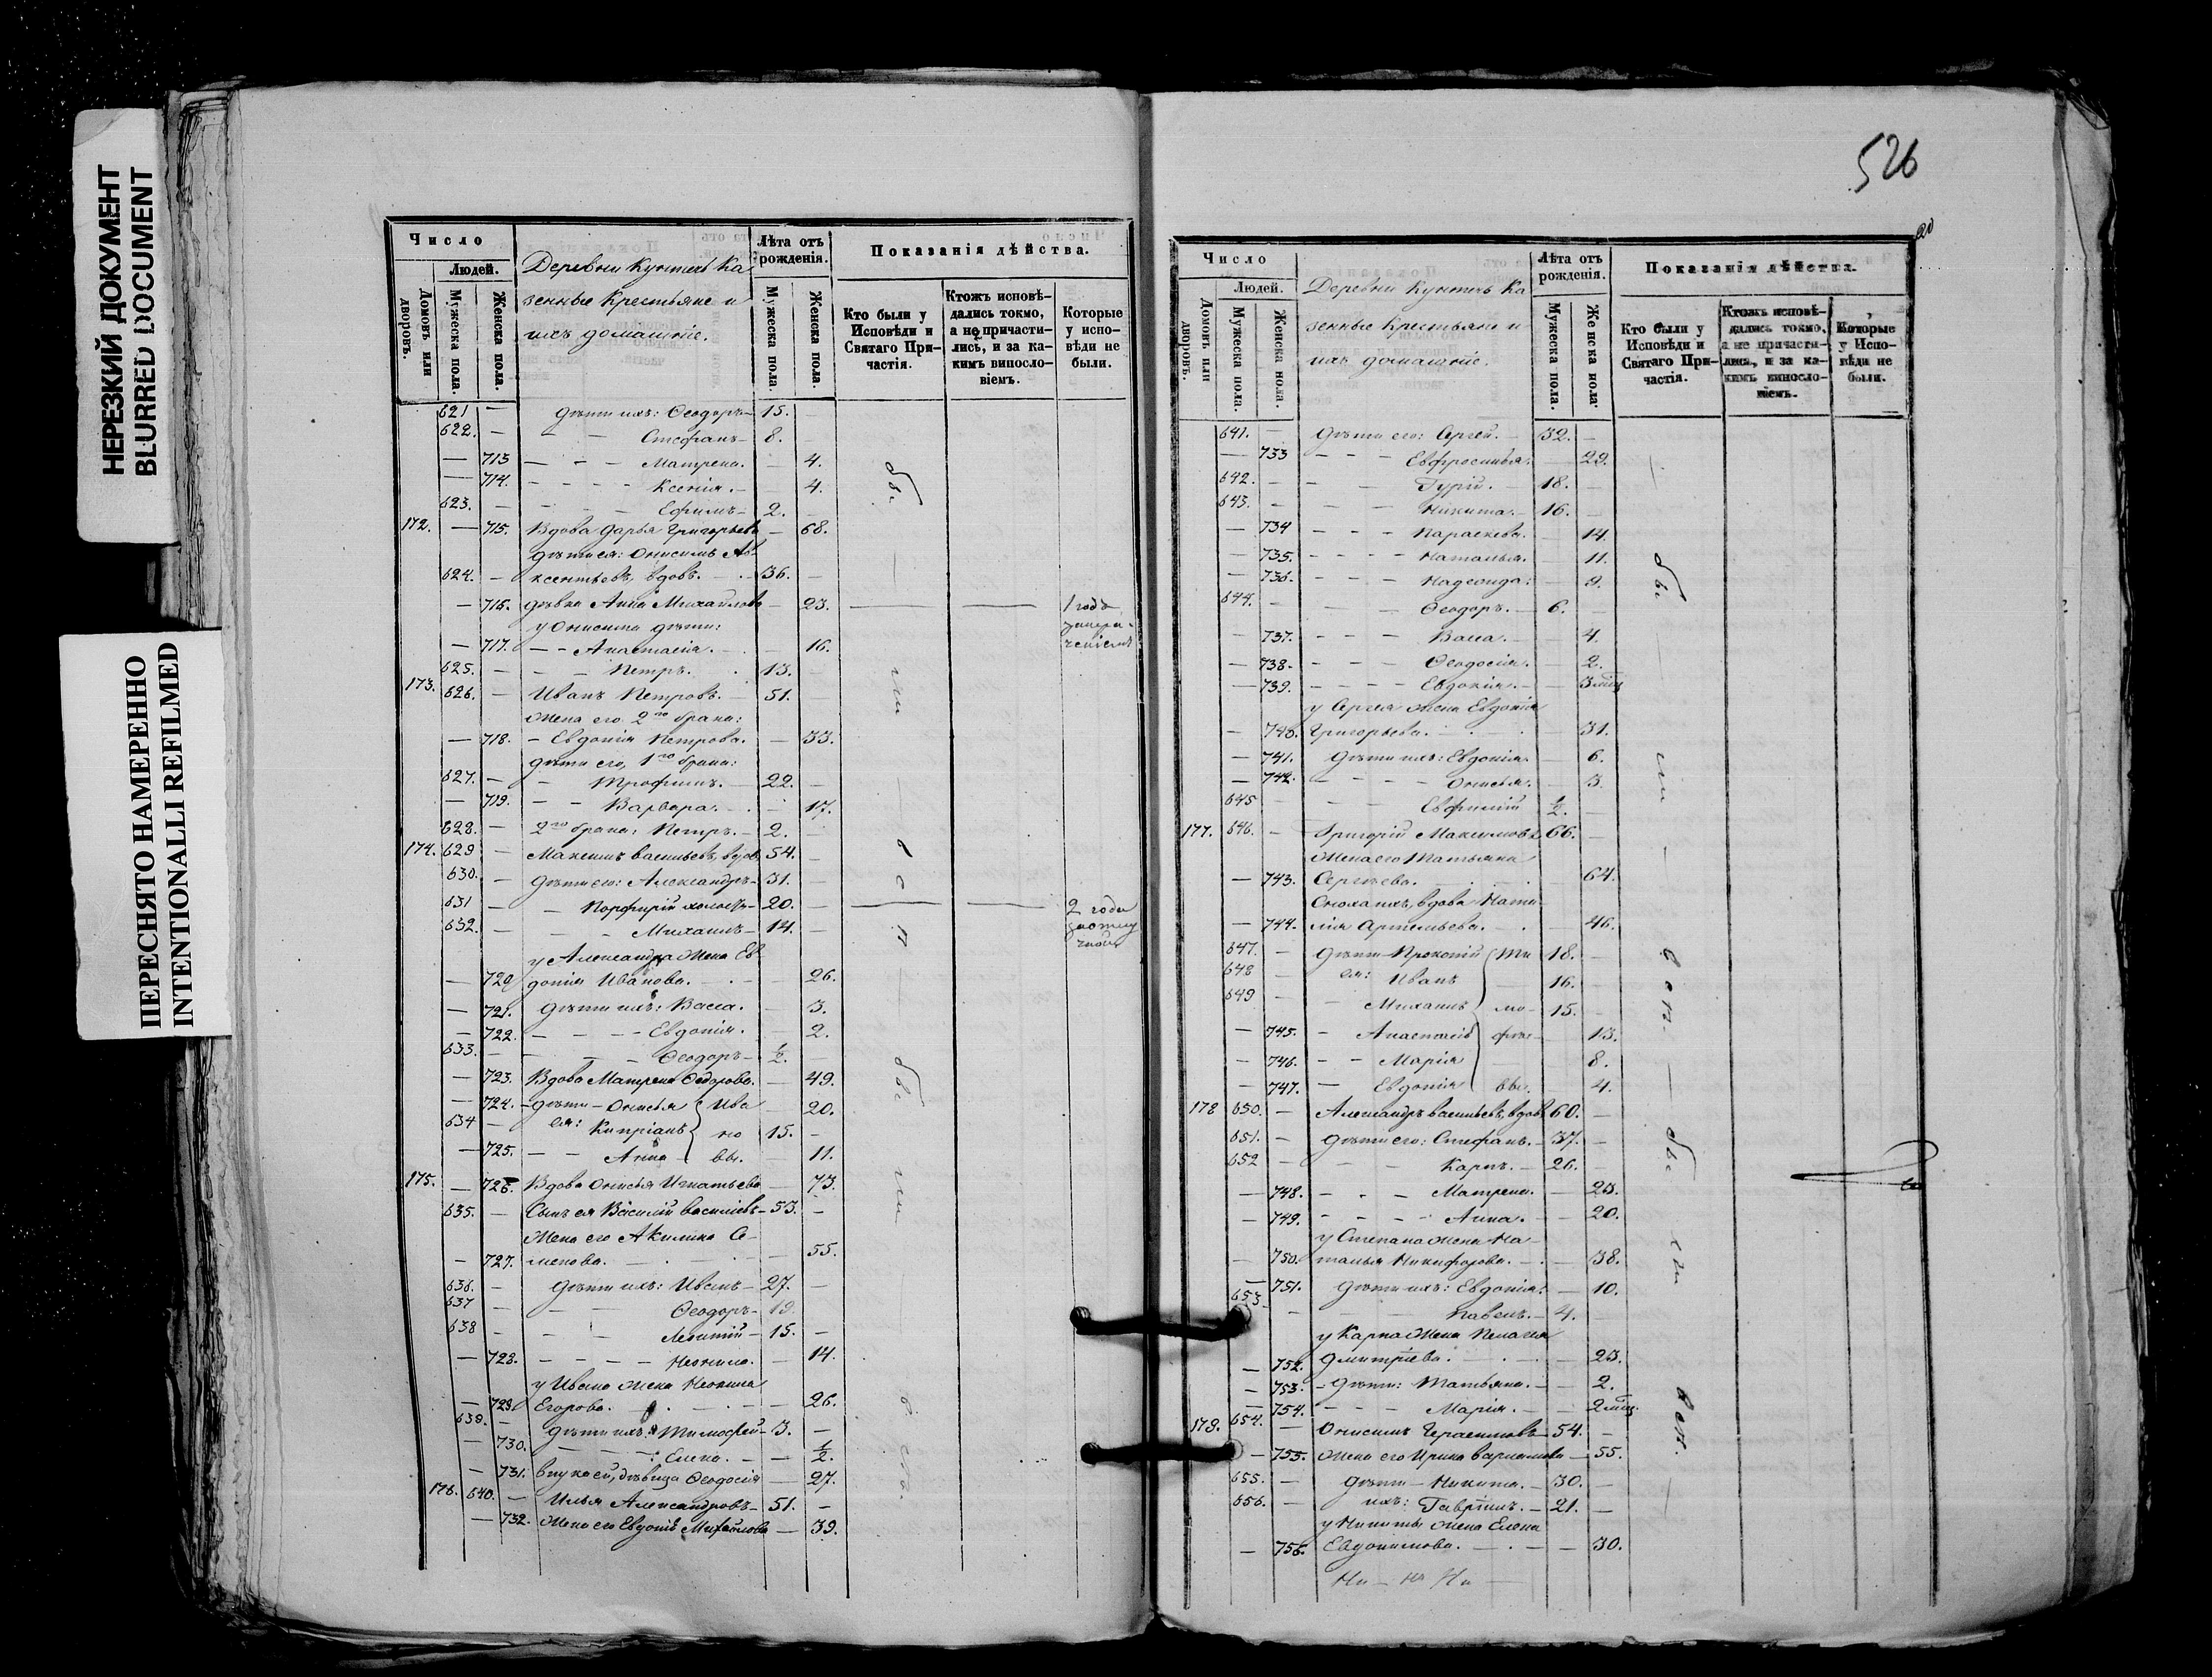 НЕРЕЗКИЙ ДОКУМЕНТ
BLURRED DOCUMENT
ПЕРЕСНЯТО НАМЕРЕННО
INTENTIONALLI REFILMED
Число
Людей.
Домовъ или дворовъ.
Мужеска пола.
Женска пола.
Деревни Кунтечь Ка
зенные Крестьяне и
ихъ домашніе.
Лѣта отъ рожденія.
Мужеска пола.
Женска пола.
Показанія дѣйства.
Кто были у Исповѣди и Святаго Причастія.
Ктожъ исповѣдались токмо, а не причастились, и за какимъ винословіемъ.
Которые у исповѣди не были.
621 — дѣти ихъ: Ѳеодоръ — 15. —
622. — — — Стефанъ — 8. —
— 713 — — — Матрена. — 4.
— 714. — — — Ксенія. — 4.
623. — — — Ефимъ — 2. —
172. — 715. Вдова Дарья Григорьева — 68.
дѣти ея: Онисимъ Ав
624. — ксентьевъ, вдовъ. — 36. —
— 716. дѣвка Анна Михайлова — 23. — — 1 годъ
у Онисима дѣти:
— 717. — — Анастасія. — 16.
625. — — — Петръ. 13. —
173. 626. — Иванъ Петровъ. — 51. —
Жена его 2го брака:
— 718. — Евдокія Петрова. — 33.
дѣти его, 1го брака:
627. — — Трофимъ. — 22. —
— 719. — — Варвара. — 17.
628. — 2го брака: Петръ. — 2. —
174. 629 — Максимъ Васильевъ, вдов. 54. —
630. — дѣти его: Александръ — 31. —
631 — — Порфирій холостъ — 20. — — — 2 года
632. — — — Михаилъ — 14. —
у Александра Жена Ев
— 720 докія Иванова. — 26.
— 721. дѣти ихъ: Васса. — 3.
— 722. — — — Евдокія. — 2.
633. — — — Ѳеодоръ — 1/2. —
— 723. Вдова Матрена Ѳедорова. — 49.
— 724. — дѣти — Онисья Ива — 20.
634 — ея: Кипріанъ но 15. —
— 725. — — Анна вы. — 11.
175. — 726. Вдова Онисья Игнатьева — 73.
635. — Сынъ ея Василій Васильевъ — 53. —
Жена его Акилина Се-
— 727. менова. — 55.
636. — дѣти ихъ: Иванъ — 27. —
637 — — — Ѳеодоръ — 19.
638 — — — Леонтій — 15. —
— 728. — — — — Неонила. — 14.
у Ивана Жена Неонила
— 729. Егорова. — 26.
639. — дѣти ихъ: Тимоѳей — 3. —
— 730. — — — Елена. — 1/2.
— 731. внука ей, дѣвица Ѳеодосія — 27.
176. 640. — Илья Александровъ — 51. —
— 732. Жена его Евдокія Михайлова — 39.
526
Число
Людей.
Домовъ или дворовъ.
Мужеска пола.
Женска пола.
Деревни Кунтечь Ка
зенные Крестьяне и
ихъ домашніе.
Лѣта отъ рожденія.
Мужеска пола.
Женска пола.
Показанія дѣйства.
Кто были у Исповѣди и Святаго Причастія.
Ктожъ исповѣдались токмо, а не причастились, и за какимъ винословіемъ.
Которые у Исповѣди не были.
641. — дѣти его: Сергей. — 32. —
— 733 — — — Евфросинья. — 29.
642. — — — Гурій. — 18. —
643. — — — Никита. — 16. —
— 734 — — — Параскева. — 14.
— 735. — — — Наталья. — 11.
— 736. — — — Надежда. — 9.
644. — — — Ѳеодоръ. — 6. —
— 737. — — — Васса. — 4.
— 738. — — — Ѳеодосія. — 2.
— 739. — — — Евдокія. — 3 мѣц.
у Сергея Жена Евдокія
— 740. Григорьева. — 31.
— 741. дѣти ихъ: Евдокія. — 6.
— 742. — — — Онисья. — 3.
645 — — — Евфимій 1/2. —
177. 646. — Григорій Максимовъ 66. —
Жена его Татьяна
— 743. Сергѣева. — 64.
Сноха ихъ, вдова Ната
— 744. лія Артемьева. — 46.
647. — дѣти Прокопій Ти 18. —
648 — ея: Иванъ — 16. —
649 — — Михаилъ мо- 15. —
— 745. — Анастасія фѣе- 13.
— 746. — — Марія — 8.
— 747. — Евдокія вы. — 4.
178 650. — Александръ Васильевъ, вдовъ 60. —
651. — дѣти его: Стефанъ. — 37. —
652 — — — Карпъ. — 26. —
— 748. — — — Матрена. — 23.
— 749. — — — Анна. — 20.
у Степана Жена На-
— 750. талья Никифорова. — 38.
— 751. дѣти ихъ: Евдокія. — 10.
653 — — — Павелъ. — 4. —
у Карпа Жена Пелагея
— 752. Дмитріева. — 23.
— 753. — дѣти: Татьяна. — 2.
— 754. — — — Марія. — 2 мѣц.
179. 654. — Онисимъ Герасимовъ — 54. —
— 755. Жена его Ирина Варламова — 55.
655. — дѣти — Никита. — 30. —
656. — ихъ: Гавріилъ. — 21. —
у Никиты Жена Елена
— 756. Евдокимова. — 30.